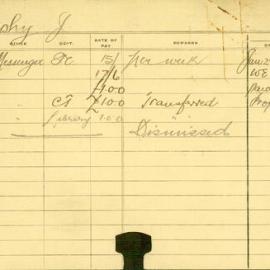 phy J
GRADE DEPT. RATE OF PAY REMARKS
Messenger 15/ per week Jan. 2
17/6 WE
£100 Paid
" CT £100 Transferred Pro
" Library 100 Dismissed